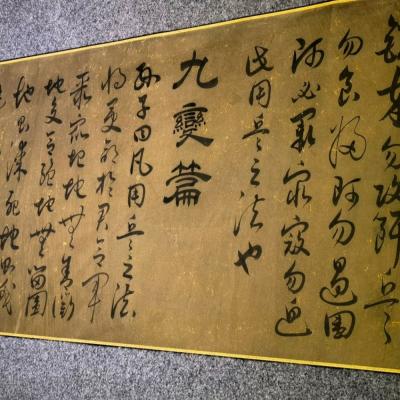 銳卒勿攻餌兵
勿食歸师勿遏圍
师必闕窮寇勿迫
此用兵之法也
九變篇
孫子曰凡用兵之法
將受命於君合軍
聚眾圮地無舍衢
地交合絕地無留圍
地則謀死地則戰